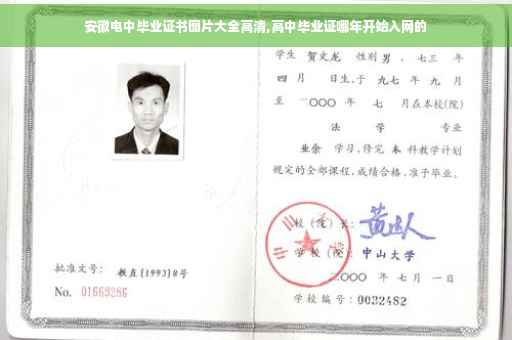 安徽电中毕业证书图片大全高清,高中毕业证哪年开始入网的
学生 贺文龙 性别 男 、七三 年
四 月 日生,于 九七 年 九 月
至 二〇〇〇 年 七 月在本校(院)
法 学 专业
业余 学习,修完 本 科教学计划
规定的全部课程,成绩合格,准予毕业。
校(院)长:
学 校(院): 中山大学
二〇〇〇 年 七 月 一 日
学校编号: 0032482
批准文号: 教直[1993]8号
No. 01663286
中山大